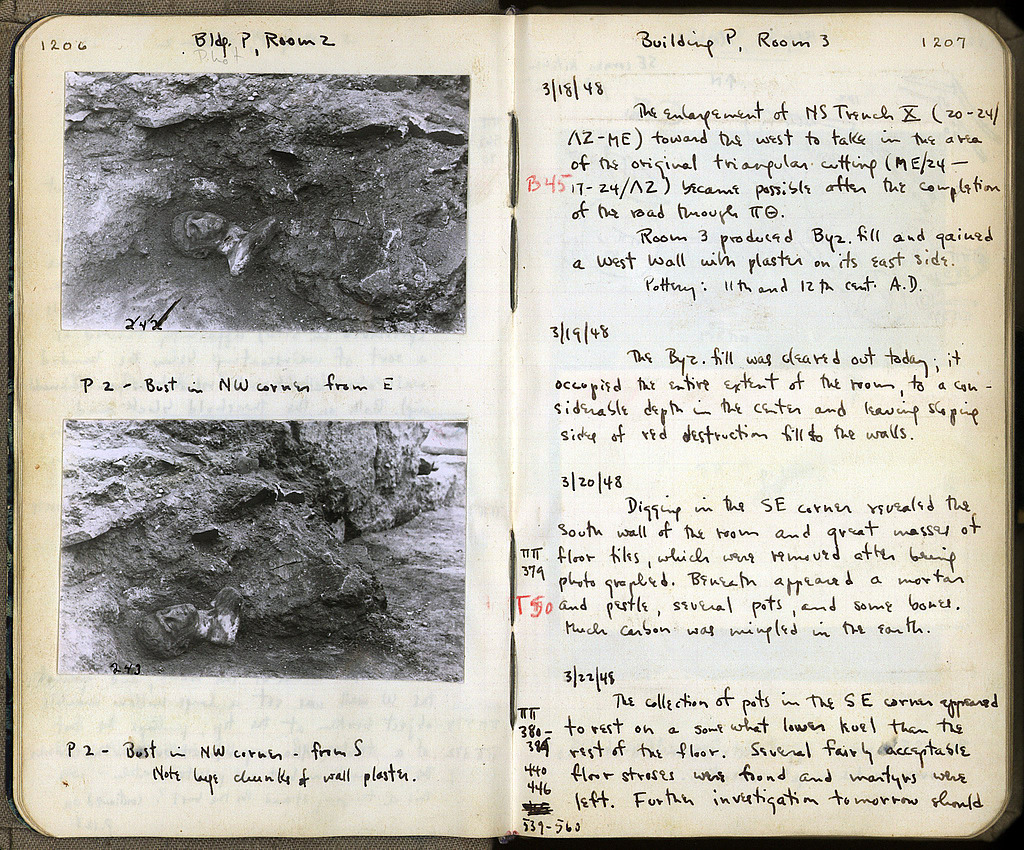 1206
Bldg. P, Room 2
242
P 2 - Bust in NW corner from E
243
P 2 - Bust in NW corner from S
Note large chunks of wall plaster.
Building P, Room 3
1207
3/18/48
The enlargement of NS Trench X (20-24/
ΛΖ-ΜΕ) toward the west to take in the area
of the original triangular cutting (ΜΕ/24—
B45 17-24/ΛΖ) became possible after the completion
of the road through ΠΘ.
Room 3 produced Byz. fill and gained
a West Wall with plaster on its east side.
Pottery: 11th and 12th cent. A.D.
3/19/48
The Byz. fill was cleared out today; it
occupied the entire extent of the room, to a con-
siderable depth in the center and leaving sloping
sides of red destruction fill to the walls.
3/20/48
Digging in the SE corner revealed the
South wall of the room and great masses of
ΠΠ floor tiles, which were removed after being
379 photographed. Beneath appeared a mortar
T50 and pestle, several pots, and some bones.
Much carbon was mingled in the earth.
3/22/48
The collection of pots in the SE corner appeared
ΠΠ
380- to rest on a somewhat lower level than the
389 rest of the floor. Several fairly acceptable
440 floor stroses were found and martyrs were
446 left. Further investigation tomorrow should
539-560